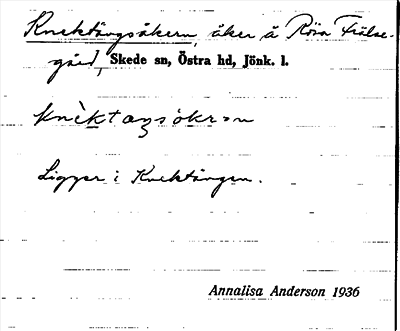 Knektängsåkern, åker å Röra Frälse-
gård, Skede sn, Östra hd, Jönk. l.
knèktaŋsåkrən
Ligger i Knektängen.
Annalisa Anderson 1936